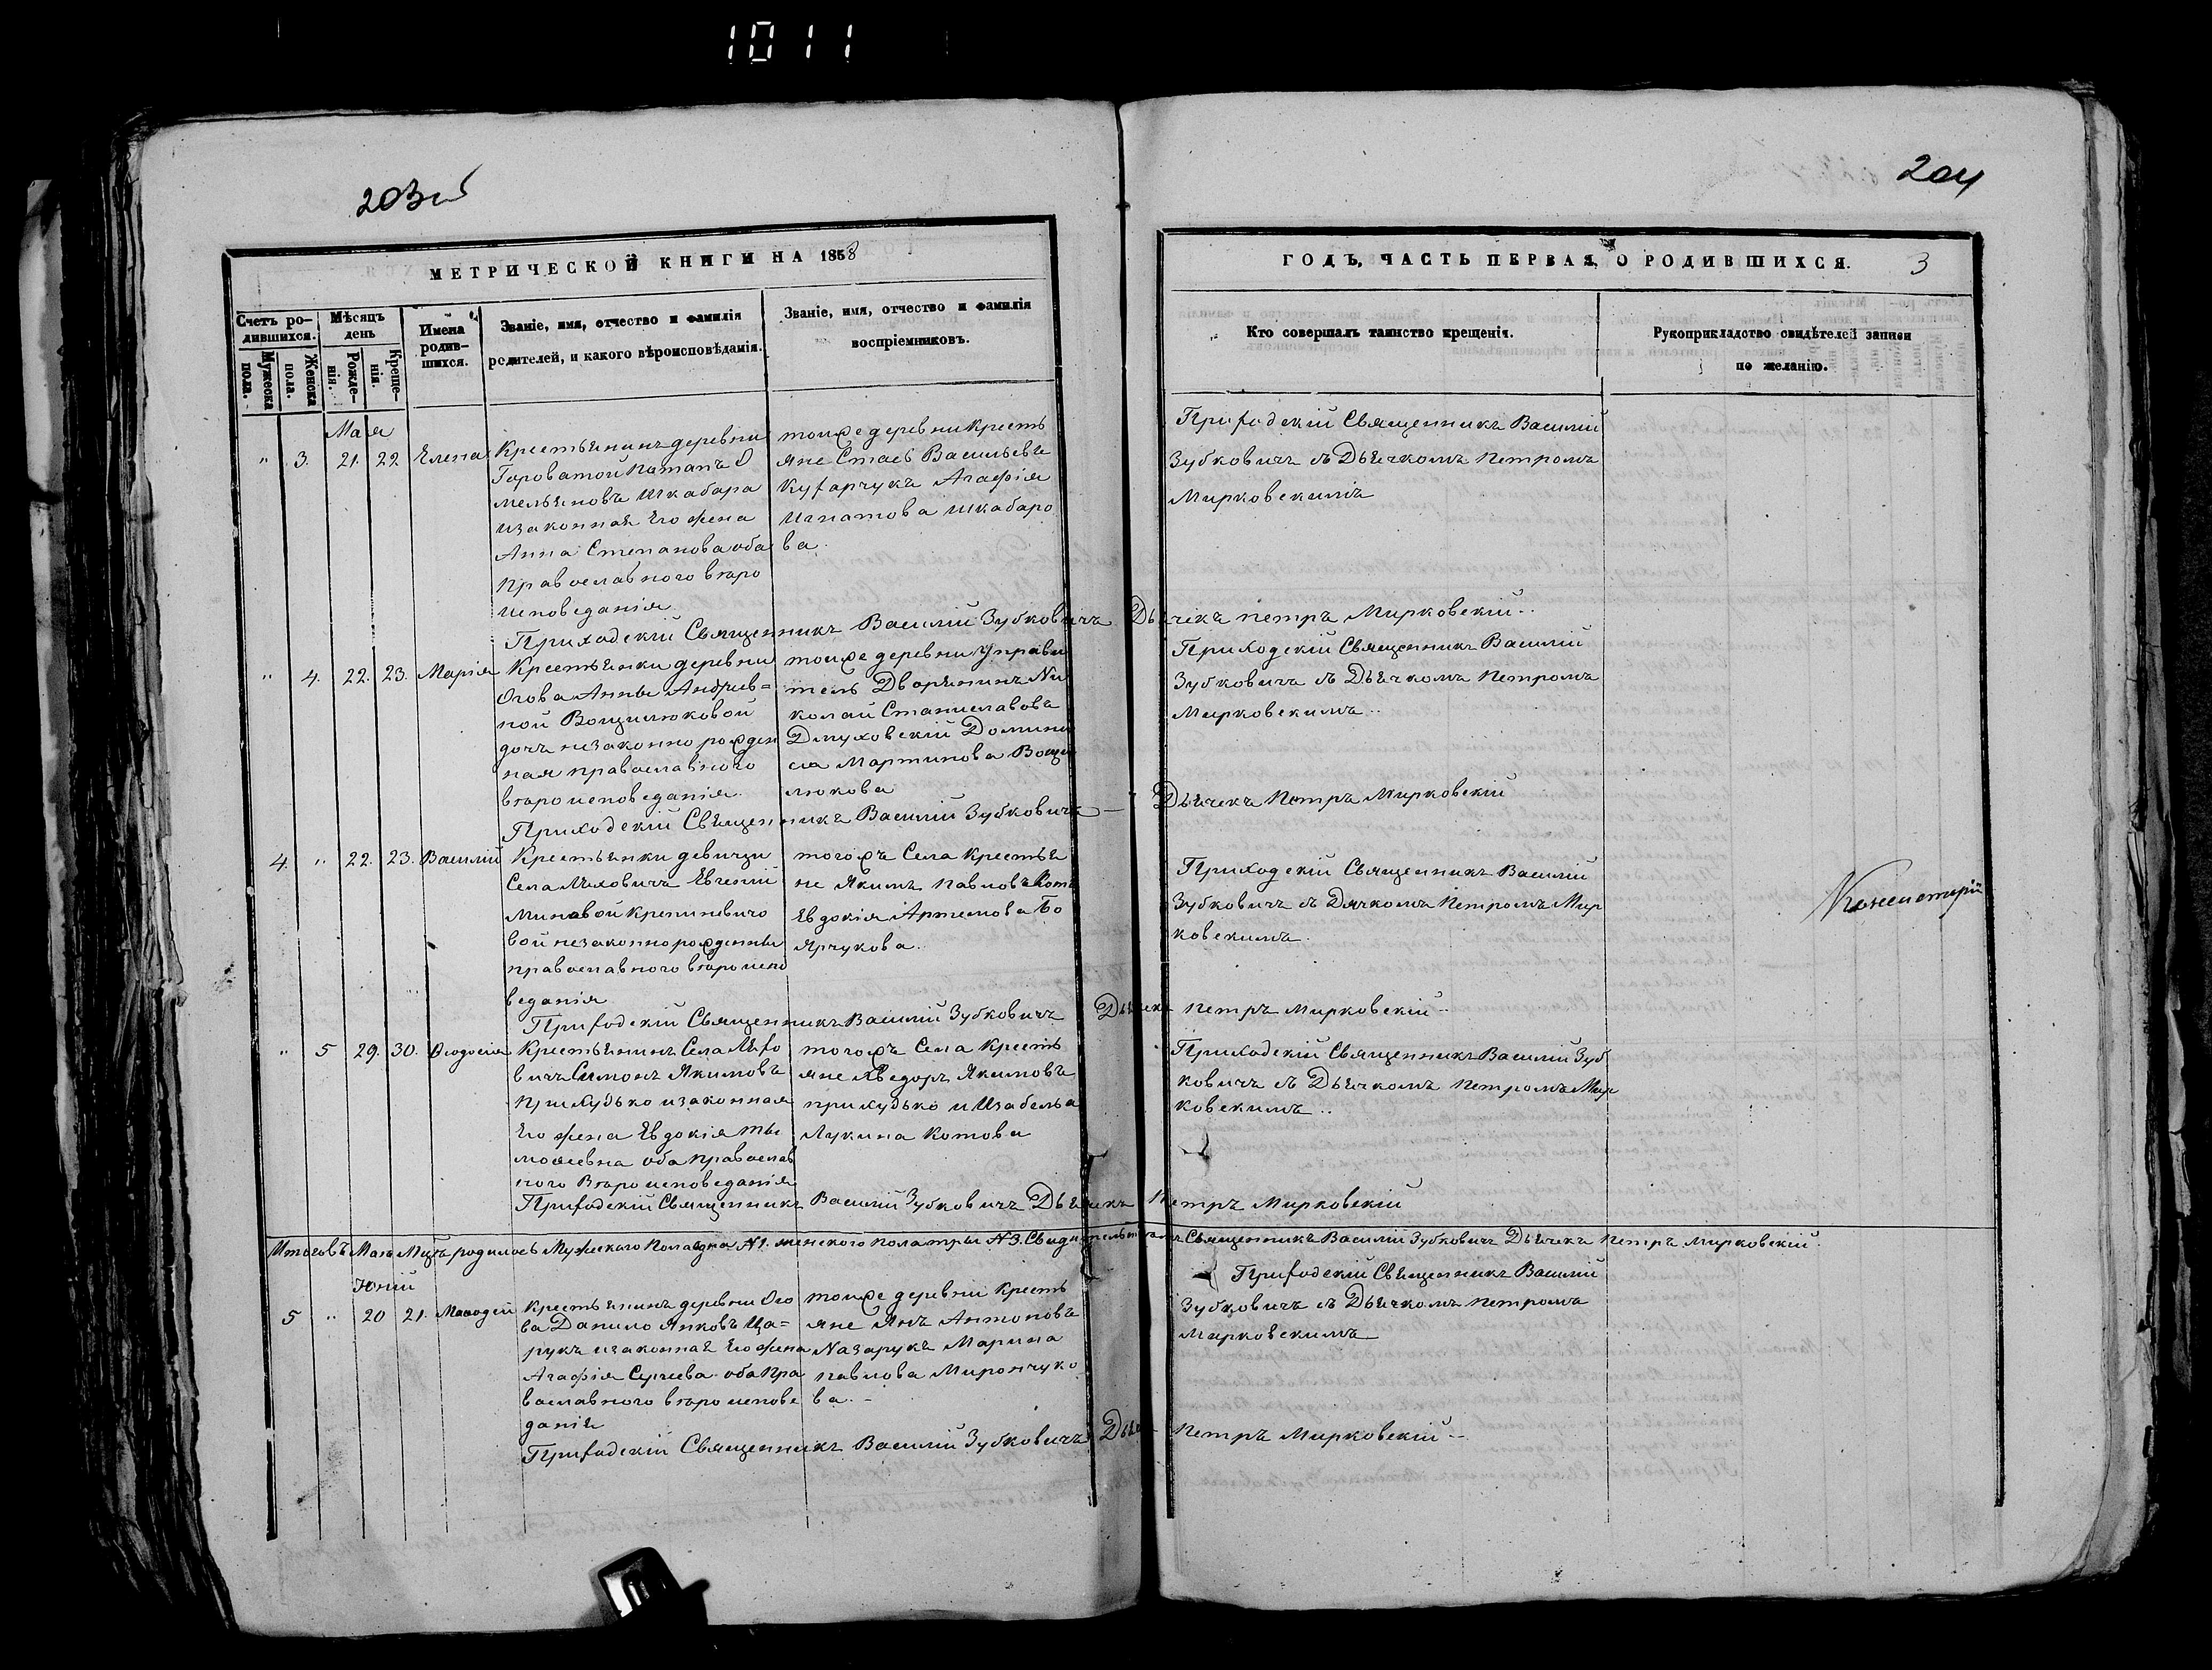 1011
204
МЕТРИЧЕСКОЙ КНИГИ НА 1858
ГОДЪ, ЧАСТЬ ПЕРВАЯ, О РОДИВШИХСЯ. 3
Счетъ ро-
дившихся.
Мужеска
пола.
Женска
пола.
Мѣсяцъ
день
Рожде-
нія.
Креще-
нія.
Имена
родив-
шихся.
Званіе, имя, отчество и фамилія
родителей, и какого вѣроисповѣданія.
Званіе, имя, отчество и фамилія
воспріемниковъ.
Кто совершалъ таинство крещенія.
Рукоприкладство свидѣтелей записи
по желанію.
Мая
" 3. 21. 22 Елена
Крестьянинъ деревни
Гороватой Потапъ О
мельяновъ Шкабара
изаконная Его жена
Анна Степанова оба
православного вѣро
исповеданія
тоижедеревни Кресть
яне Стась Васильевъ
Кухарчукъ Агафія
Игнатова Шкабаро
ва.
Приходскій Священникъ Василій
Зубковичъ съ Дьячкомъ Петромъ
Мирковскимъ
Приходскій Священникъ Василій Зубковичъ Дьячекъ петръ Мирковскій..
" 4. 22. 23. Марія
Крестьянки деревни
Огова Анны Андрив=
ной Вощилюковой
дочь незаконно рожден
ная православного
вѣроисповеданія.
тоиже деревни Управи
тель Дворянинъ Ни
колай Станиславовъ
Дмуховскій Домини
ся Мартинова Вощи
люкова
Приходскій Священникъ Василій
Зубковичъ съ Дьячкомъ Петромъ
Мирковскимъ..
Приходскій Священникъ Василій Зубковичъ — Дьячекъ Петръ Мирковскій
4. " 22. 23. Василій
Крестьянки девици
Села Мховичъ Евгеній
Миновой Крениневичо
вой незаконнорожденный
православного вѣроиспо
веданія
тогожъ Села Крестья
не Якимъ Павловъ Котъ
Евдокія Артемова Бо
ярчукова.
Приходскій Священникъ Василій
Зубковичъ съ Дячкомъ Петромъ Мир
ковскимъ.
Приходскій Священникъ Василій Зубковичъ Дьячекъ Петръ Мирковскій..
" 5 29. 30. Ѳеодосія
Крестьянинъ Села Мхо
вичъ Симонъ Якимовъ
Прихудько изаконная
Его жена Евдокія Ти
моѳеевна оба православ
ного Вѣроисповеданія
тогожъ Села Кресть
яне Ѳедоръ Якимовъ
прихудько и Изабелья
Лукина Котова
Приходскій Священникъ Василій Зуб
ковичъ съ Дьячкомъ Петромъ Мир
ковскимъ..
Приходскій Священникъ Василій Зубковичъ Дьячекъ Петръ Мирковскій
Итого въ Маѣ Мцѣ родилось Мужеского Пола одна №1. женского пола три №3. Свидетельствуемъ Священникъ Василій Зубковичъ Дьячекъ Петръ Мирковскій.
Юній
5 " 20 21.
Крестьянинъ деревни Ого
ва Данило Янковъ Ца=
рукъ изаконная Его жена
Агафія Сергеева оба Пра
вославного вѣроисповѣ
данія
тоиже деревни Кресть
яне Янъ Антоновъ
Назарукъ Марина
павлова Мирончуко
ва.-
Приходскій Священникъ Василій
Зубковичъ съ Дьячкомъ петромъ
Мирковскимъ
Приходскій Священникъ Василій Зубковичъ Дьяч- Петръ Мирковскій.-